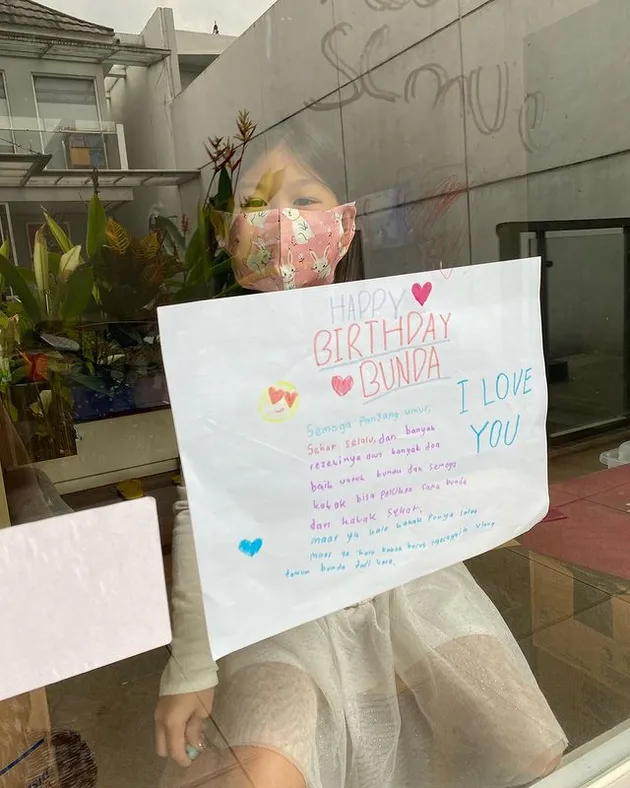 SEMUA
HAPPY
BIRTHDAY
BUNDA
I LOVE
YOU
Semoga panjang umur,
Sehat selalu, dan banyak
rezekinya dan banyak doa
baik untuk bunda dan semoga
kakak bisa pelukan sama bunda
dan kakak sehat.
maaf ya kalo kakak punya salah
maaf ya kalo kakak harus ngerayain ulang
tahun bunda dari